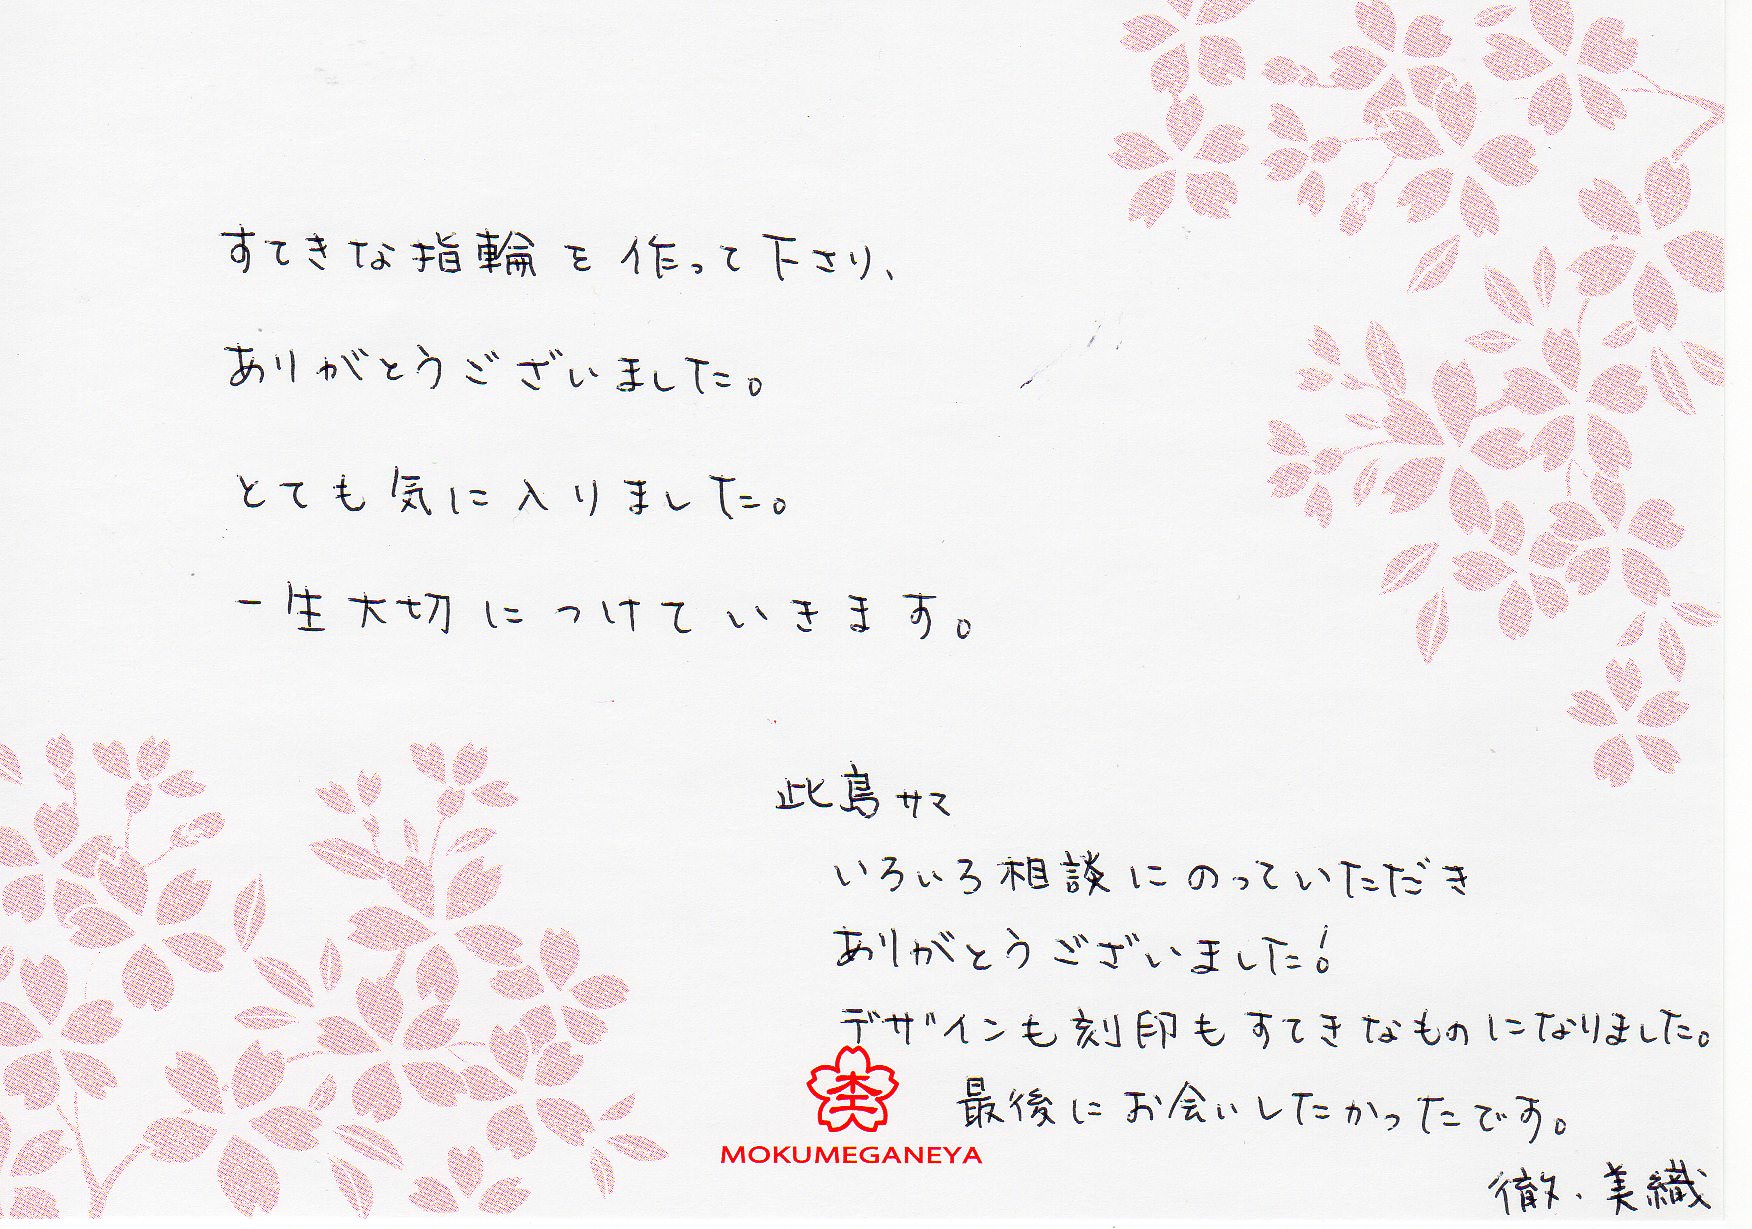 すてきな指輪を作って下さり、
ありがとうございました。
とても気に入りました。
一生大切につけていきます。
此島サマ
いろいろ相談にのっていただき
ありがとうございました!
デザインも刻印もすてきなものになりました。
最後にお会いしたかったです。
徹・美織
杢
MOKUMEGANEYA